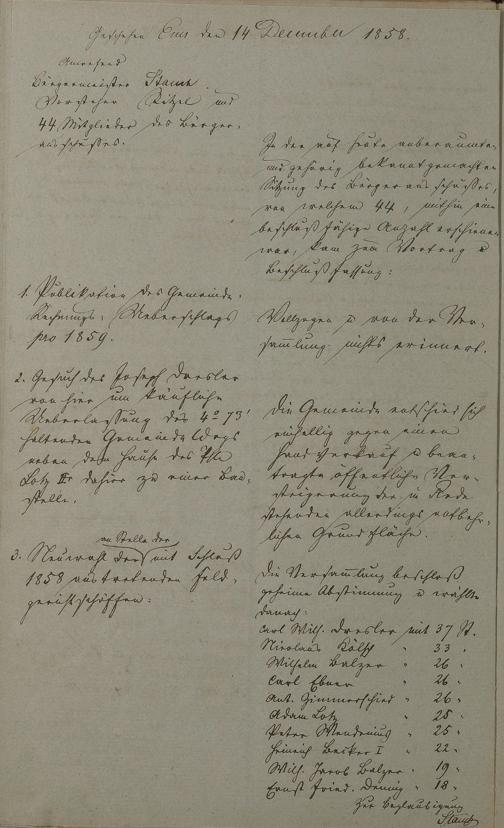 Geschehen Ems den 14 December 1858.
Anwesend
Bürgermeister Stamm
Vorsteher Kitzel und
44 Mitglieder des Bürger-
ausschusses.
In der auf heute anberaumten
und gehörig bekannt gemachten
Sitzung des Bürgerausschusses,
von welchem 44, mithin eine
beschlußfähige Anzahl erschienen
war, kam zum Vortrag u
Beschlußfassung:
1. Publikation des Gemeinde-
Rechnungs-Ueberschlags
pro 1859.
Vollzogen u von der Ver-
sammlung nichts erinnert.
2. Gesuch des Joseph Dresler
von hier um käufliche
Ueberlassung des 4° 75'
haltenden Gemeindewegs
neben dem Hause des
Lotz dahier zu einer Bau-
stelle.
Die Gemeinde entschied sich
einhellig gegen einen
Handverkauf u bean-
tragte öffentliche Ver-
steigerung der in Rede
stehenden allerdings entbehr-
lichen Grundfläche.
3. Neuwahl der an Stelle der mit Schluß
1858 austretenden Feld-
gerichtsschöffen:
Die Versammlung beschloß
geheime Abstimmung u wählte
danach:
Carl Wilh. Dresler mit 37 St.
Nicolaus Kölsch " 33 "
Wilhelm Balzer " 26 "
Carl Ebner " 26 "
Ant. Zimmerschied " 26 "
Adam Lotz " 25 "
Peter Wendenius " 25 "
Heinrich Becker I " 22 "
Wilh. Jacob Balzer " 19 "
Ernst Fried. " 18 "
Zur Beglaubigung
Stamm